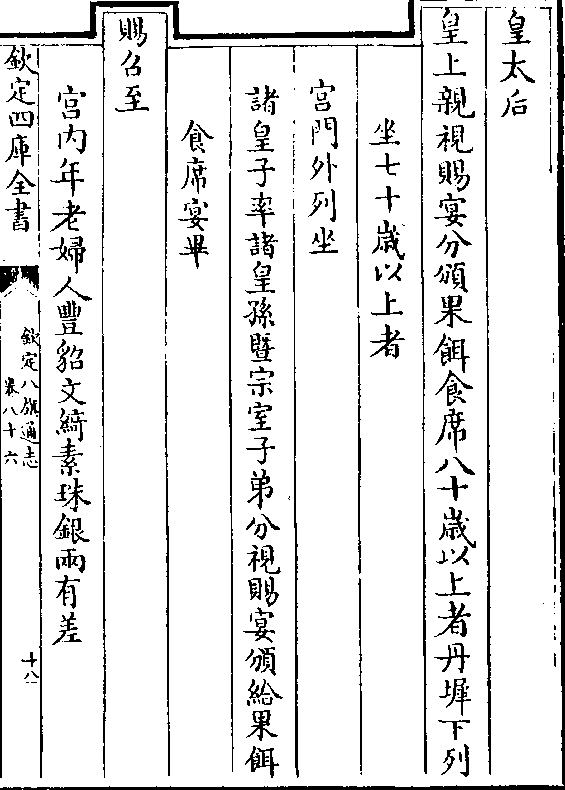 皇太后
皇上親視賜宴分頒果餌食席八十歳以上者丹墀下列
坐七十歳以上者
宮門外列坐
諸皇子率諸皇孫暨宗室子弟分視賜宴頒給果餌
食席宴畢
賜召至
宮内年老婦人豐貂文綺素珠銀兩有差
欽定四庫全書
欽定八旗通志
卷八十六
十八